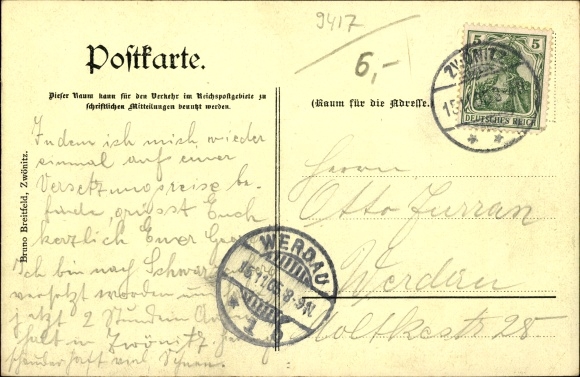 9417
6,-
Postkarte.
Dieser Raum kann für den Verkehr im Reichspostgebiete zu
schriftlichen Mitteilungen benutzt werden.
(Raum für die Adresse.)
5 5
DEUTSCHES REICH
ZWÖNITZ
15
Bruno Breitfeld, Zwönitz.
Indem ich mich wieder
einmal auf einer
Versetzungsreise be-
finde, grüsst Euch
herzlich Euer
Ich bin nach
versetzt worden
jetzt 2 Stunden
halt in Zwönitz
viel Schnee.
WERDAU
Herrn
Otto Furran
Werdau
Moltkestr 28